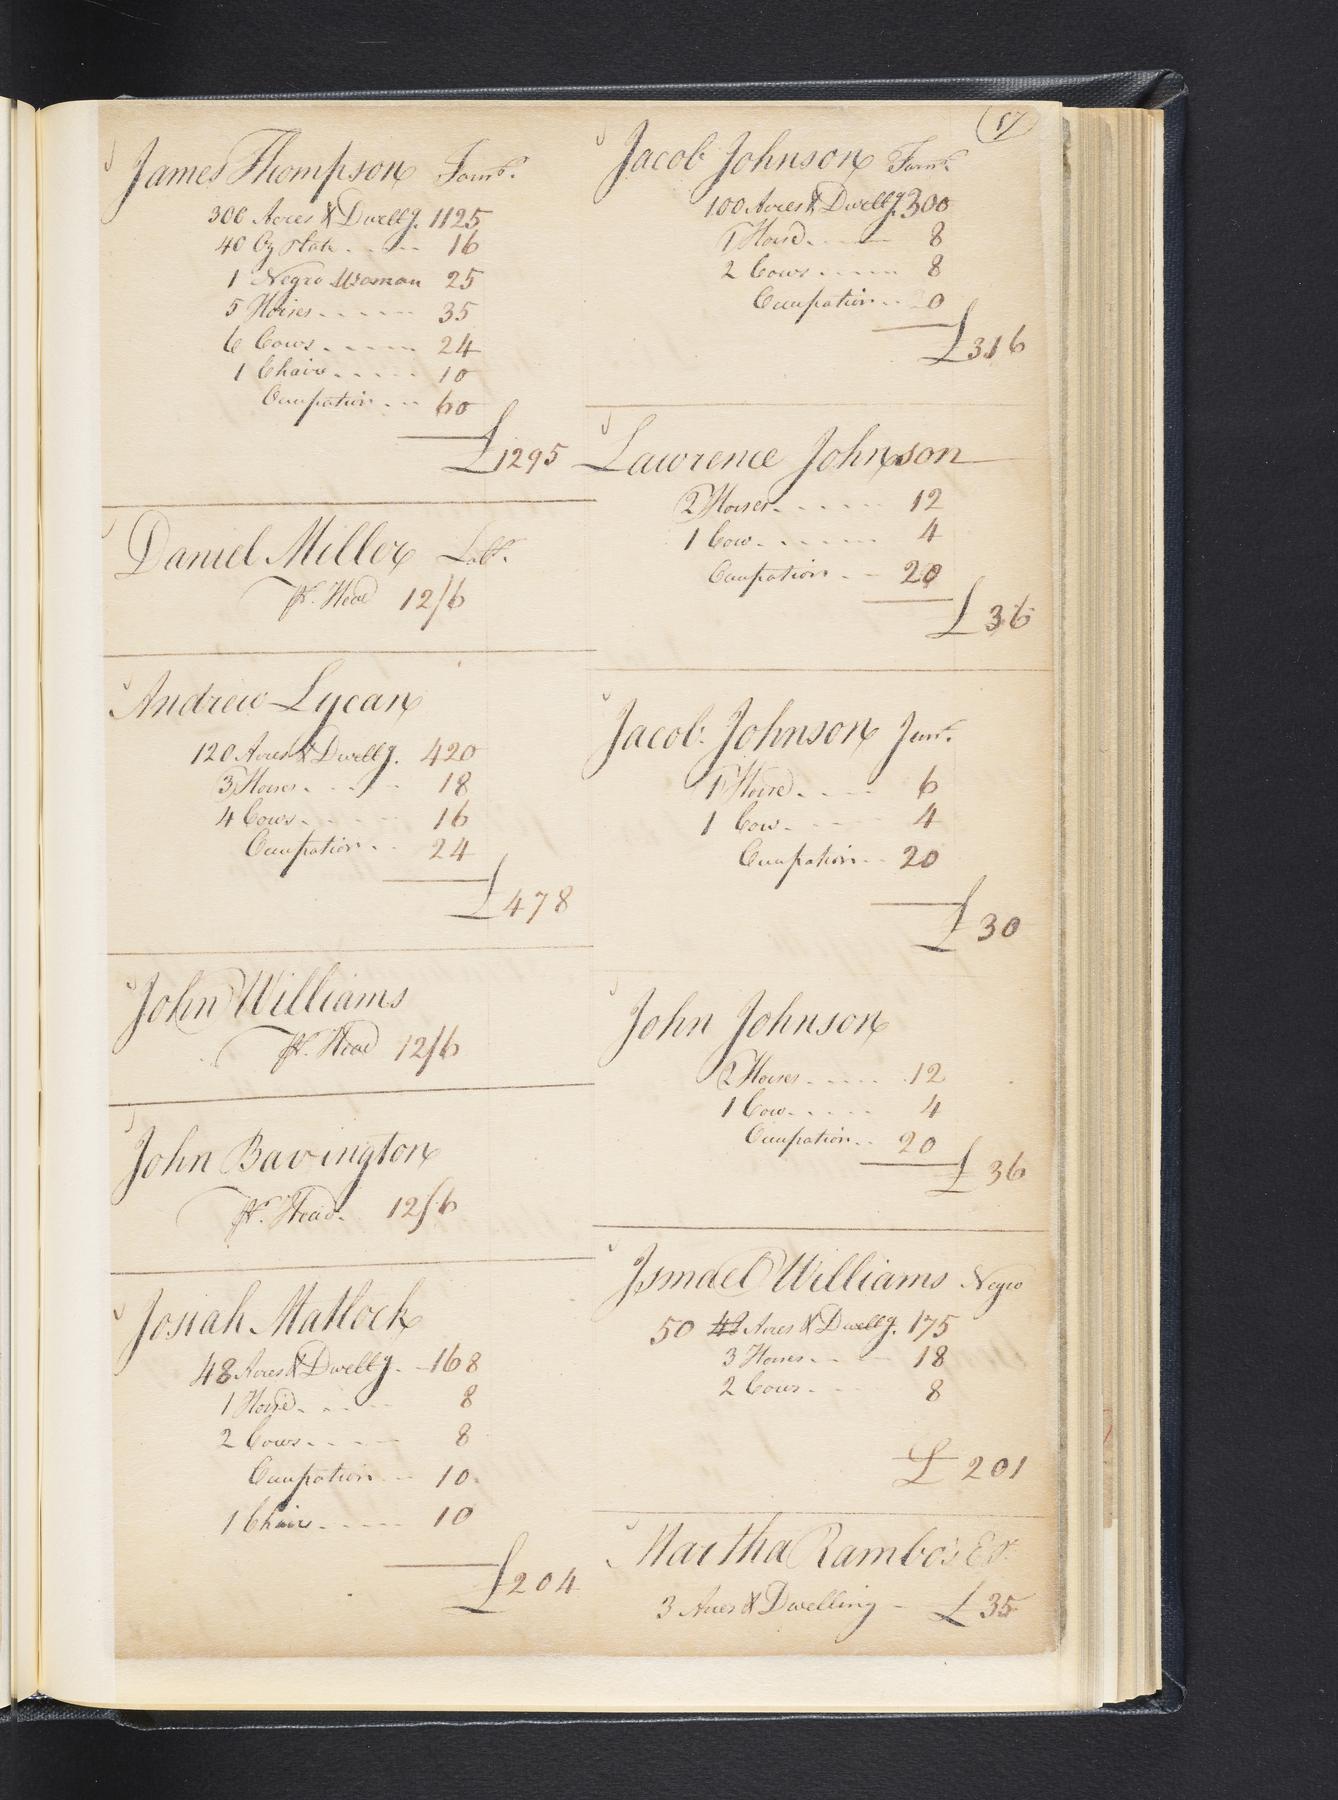 17
James Thompson Farmr.
300 Acres & Dwellg. 1125
40 Oz plate 16
1 Negro Woman 25
5 Horses 35
6 Cows 24
1 Chair 10
Occupation 60
£1295
Daniel Miller Labr.
Pr. Head 12/6
Andrew Lycan
120 Acres & Dwellg. 420
3 Horses 18
4 Cows 16
Occupation 24
£478
John Williams
Pr. Head 12/6
John Bavington
Pr. Head 12/6
Josiah Matlock
48 Acres & Dwellg. 168
1 Horse 8
2 Cows 8
Occupation 10
1 Chair 10
£204
Jacob Johnson Farmr.
100 Acres & Dwellg. 300
1 Horse 8
2 Cows 8
Occupation 0
£316
Lawrence Johnson
2 Horses 12
1 Cow 4
Occupation 20
£36
Jacob Johnson Junr.
1 Horse 6
1 Cow 4
Occupation 20
£30
John Johnson
2 Horses 12
1 Cow 4
Occupation 20
£36
Ismael Williams Negro
50 Acres & Dwellg. 175
3 Horses 18
2 Cows 8
£201
Martha Rambo's Et.
3 Acres & Dwelling £35